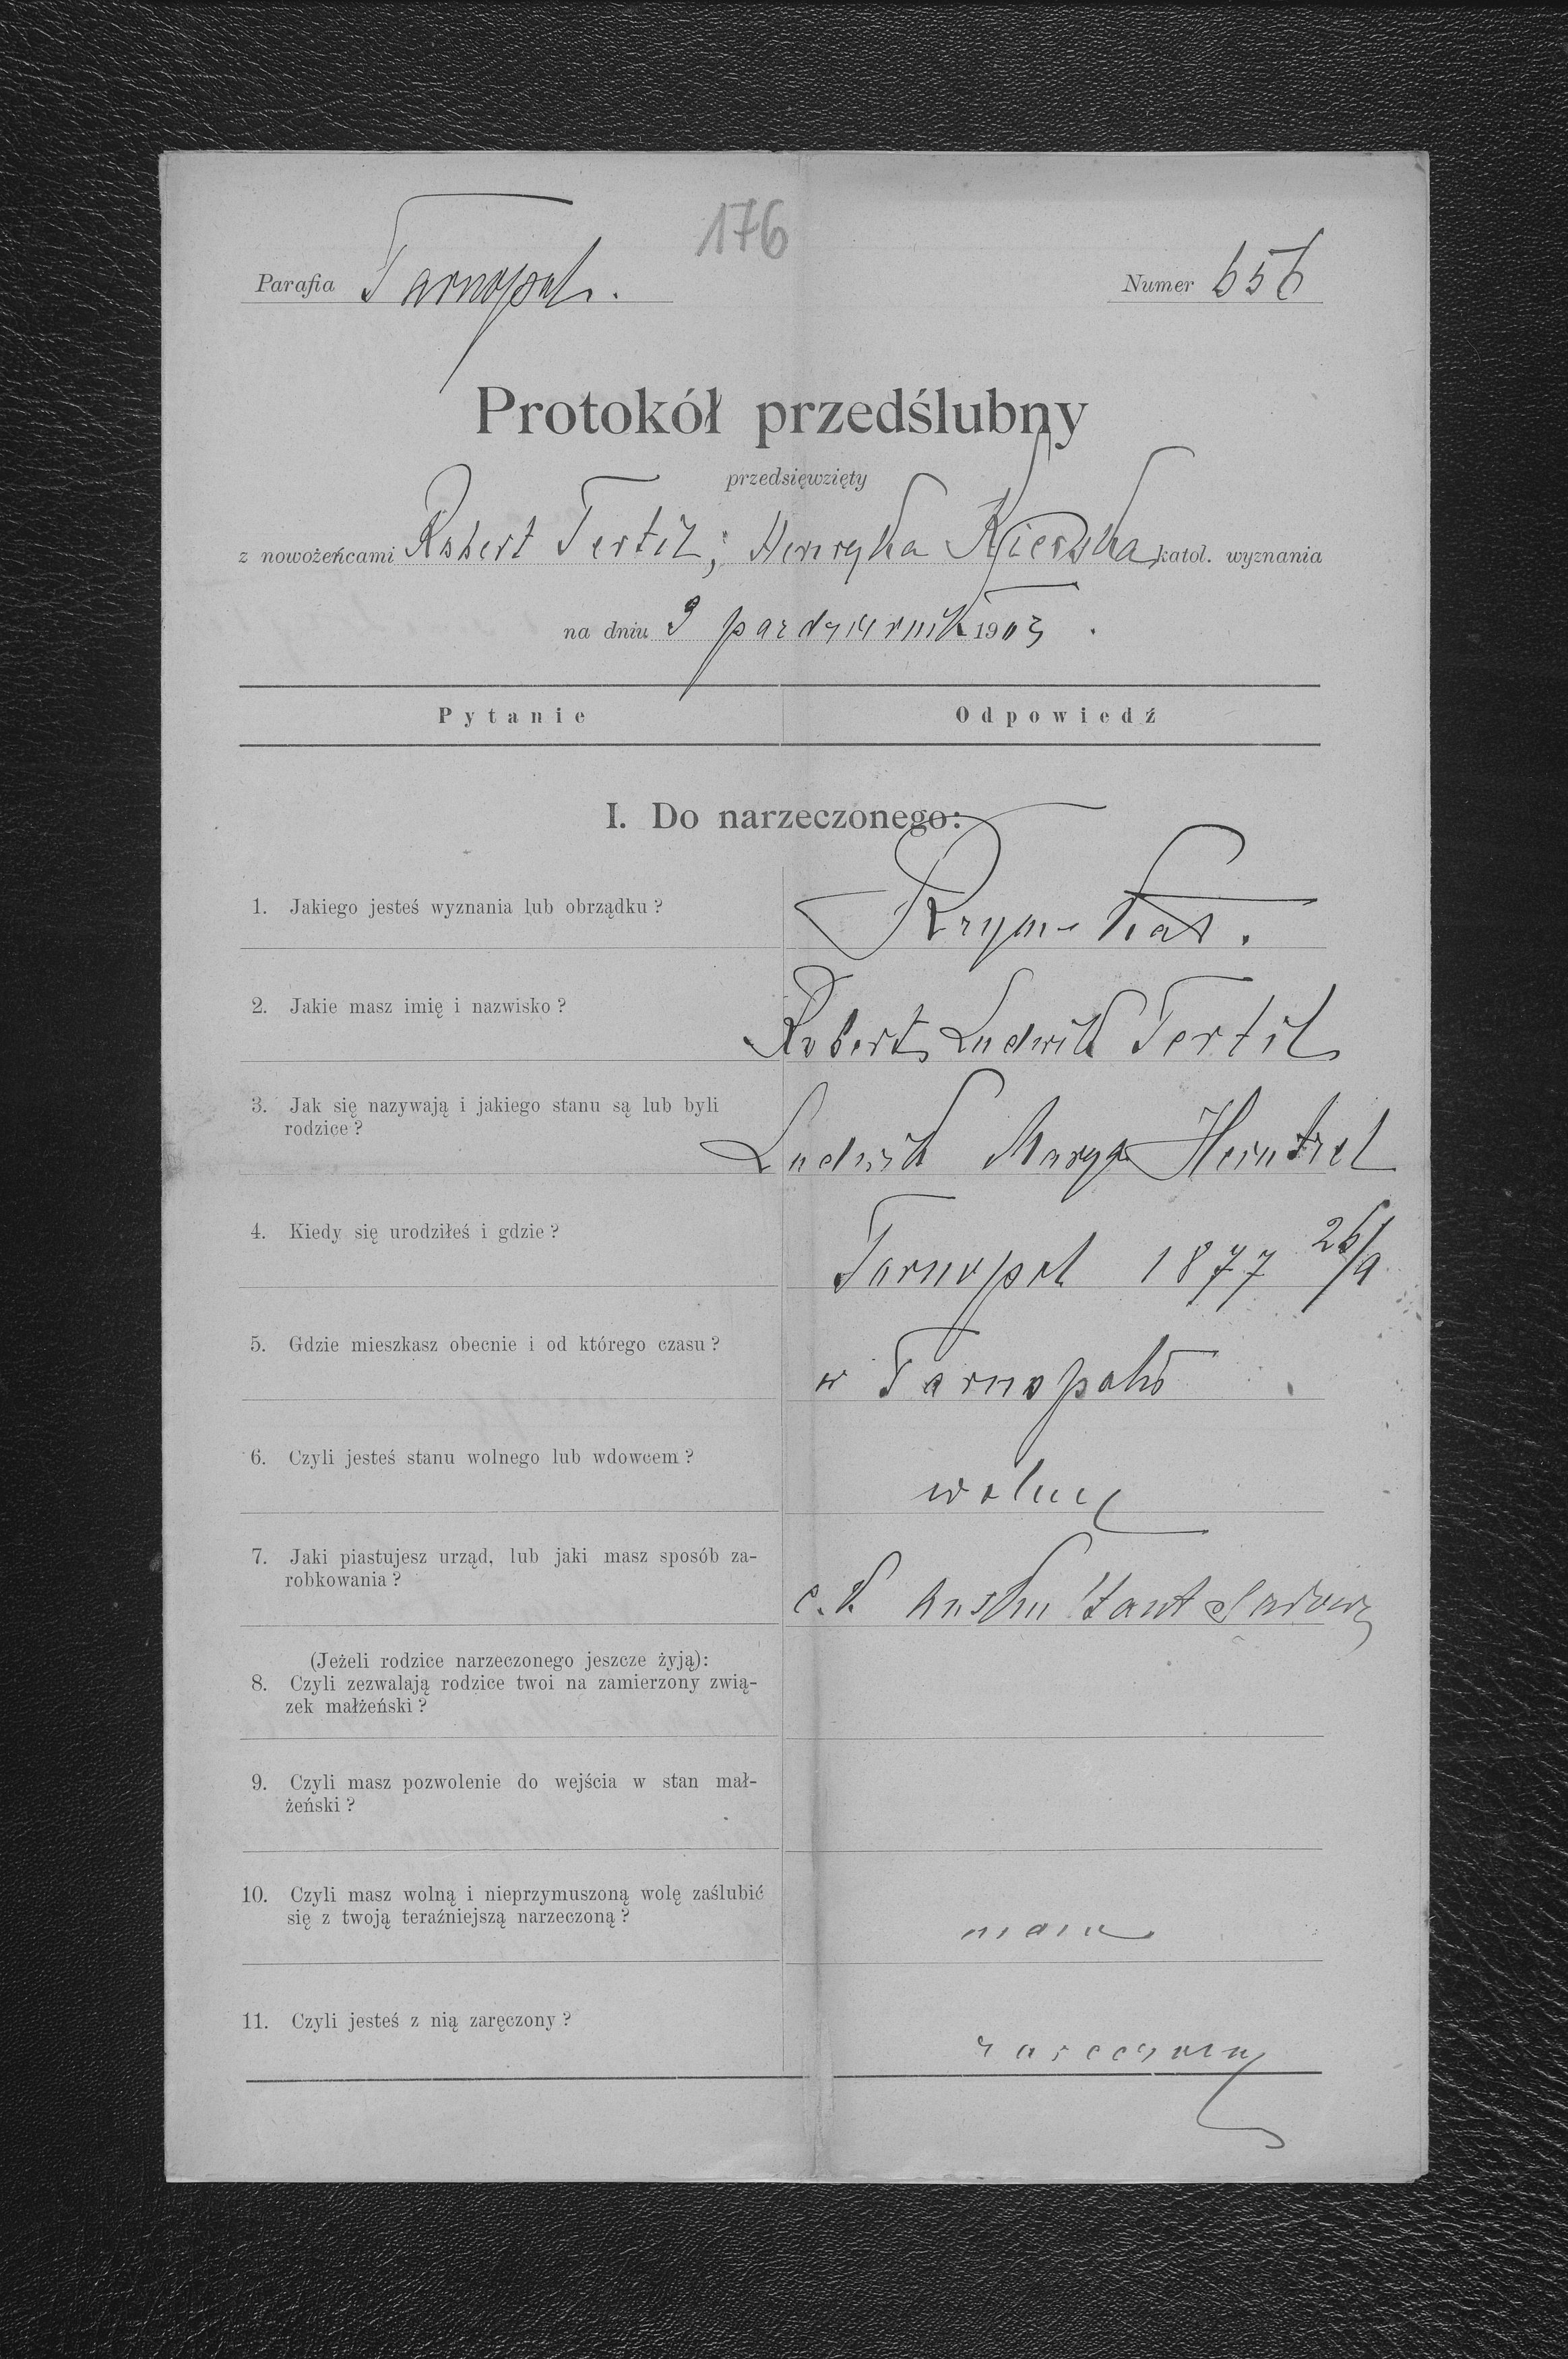 176
Parafia Tarnopol.
Numer 656
Protokół przedślubny
przedsięwzięty
z nowożeńcami Robert Tertil; Henryka katol. wyznania
na dniu 9 październik 1903.
Pytanie Odpowiedź
I. Do narzeczonego:
1. Jakiego jesteś wyznania lub obrządku? Rzym kat.
2. Jakie masz imię i nazwisko? Robert Ludwik Tertil
3. Jak się nazywają i jakiego stanu są lub byli
rodzice? Ludwik Marya
4. Kiedy się urodziłeś i gdzie? Tarnopol 1877 26/9
5. Gdzie mieszkasz obecnie i od którego czasu? w Tarnopolu
6. Czyli jesteś stanu wolnego lub wdowcem? wolny
7. Jaki piastujesz urząd, lub jaki masz sposób za-
robkowania? c. k. auskultant sądowy
(Jeżeli rodzice narzeczonego jeszcze żyją):
8. Czyli zezwalają rodzice twoi na zamierzony zwią-
zek małżeński?
9. Czyli masz pozwolenie do wejścia w stan mał-
żeński?
10. Czyli masz wolną i nieprzymuszoną wolę zaślubić
się z twoją teraźniejszą narzeczoną? mam
11. Czyli jesteś z nią zaręczony? zaręczony